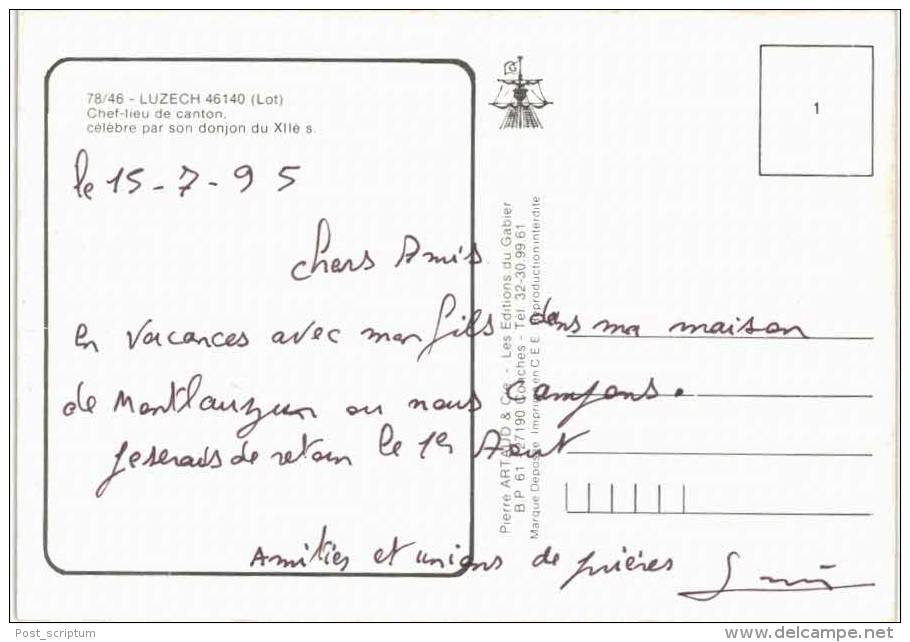 78/46 - LUZECH 46140 (Lot)
Chef-lieu de canton,
célèbre par son donjon du XIIè s.
le 15-7-95
Chers Amis
en vacances avec mon fils dans ma maison
de Montlauzun ou nous campons.
Je serais de retour le 1er Aout
Amitiés et unions de prières
Pierre ARTAUD & Cie - Les Editions du Gabier
B.P. 61 - 27190 Conches - Tél. 32-30.99.61
Marque Déposée Imprimé en C.E.E. Reproduction interdite
1
Post_scriptum
delcampe.net